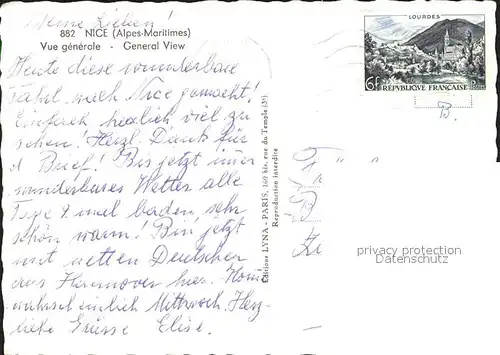 Meine Lieben!
882 NICE (Alpes-Maritimes)
Vue générale - General View
Heute diese wunderbare
Fahrt nach Nice gemacht!
Einfach herrlich viel zu
sehen! Herzl. Dank für
d Brief! Bin jetzt
wunderbares Wetter alle
Tage 2 mal baden, sehr
schön warm! Bin jetzt
mit netten Deutschen
aus Hannover hier.
wahrscheinlich Mittwoch. Herz-
liche Grüsse Elise.
Editions LYNA - PARIS, 160 bis, rue du Temple (3e)
Reproduction interdite
LOURDES
6f
REPUBLIQUE FRANÇAISE
B.
privacy protection
Datenschutz